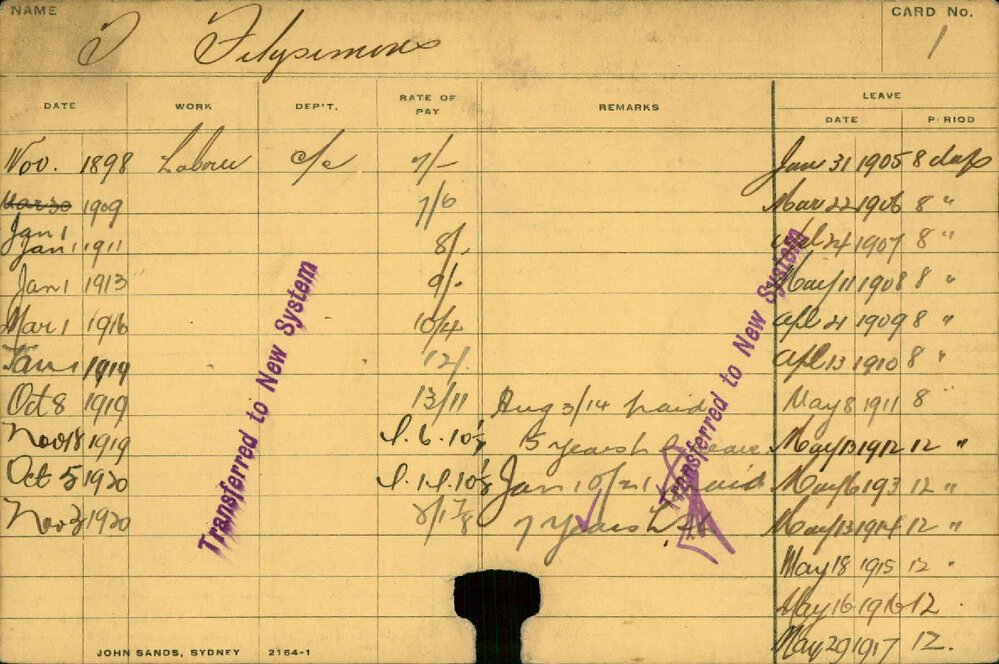 NAME
CARD No.
T Fitzsimons
1
DATE WORK DEP'T. RATE OF PAY REMARKS LEAVE
DATE PERIOD
Nov. 1898 Labour c/c 7/- Jan 31 1905 8 days
Mar 30 1909 7/6 Mar 22 1906 8 "
Jan 1
Jan 1 1911 8/- Apl 24 1907 8 "
Jan 1 1913 9/- May 11 1908 8 "
Mar 1 1916 10/4 Apl 21 1909 8 "
Jan 1 1919 12/- Apl 13 1910 8 "
Oct 8 1919 13/11 Aug 3/14 paid May 8 1911 8 "
Nov 18 1919 5 years Leave May 13 1912 12 "
Oct 5 1920 Jan 10/21 Paid May 16 1913 12 "
Nov 1920 7 years May 13 1914 12 "
May 18 1915 12 "
May 16 1916 12 .
May 29 1917 12 .
Transferred to New System
Transferred to New System
JOHN SANDS, SYDNEY 2164-1